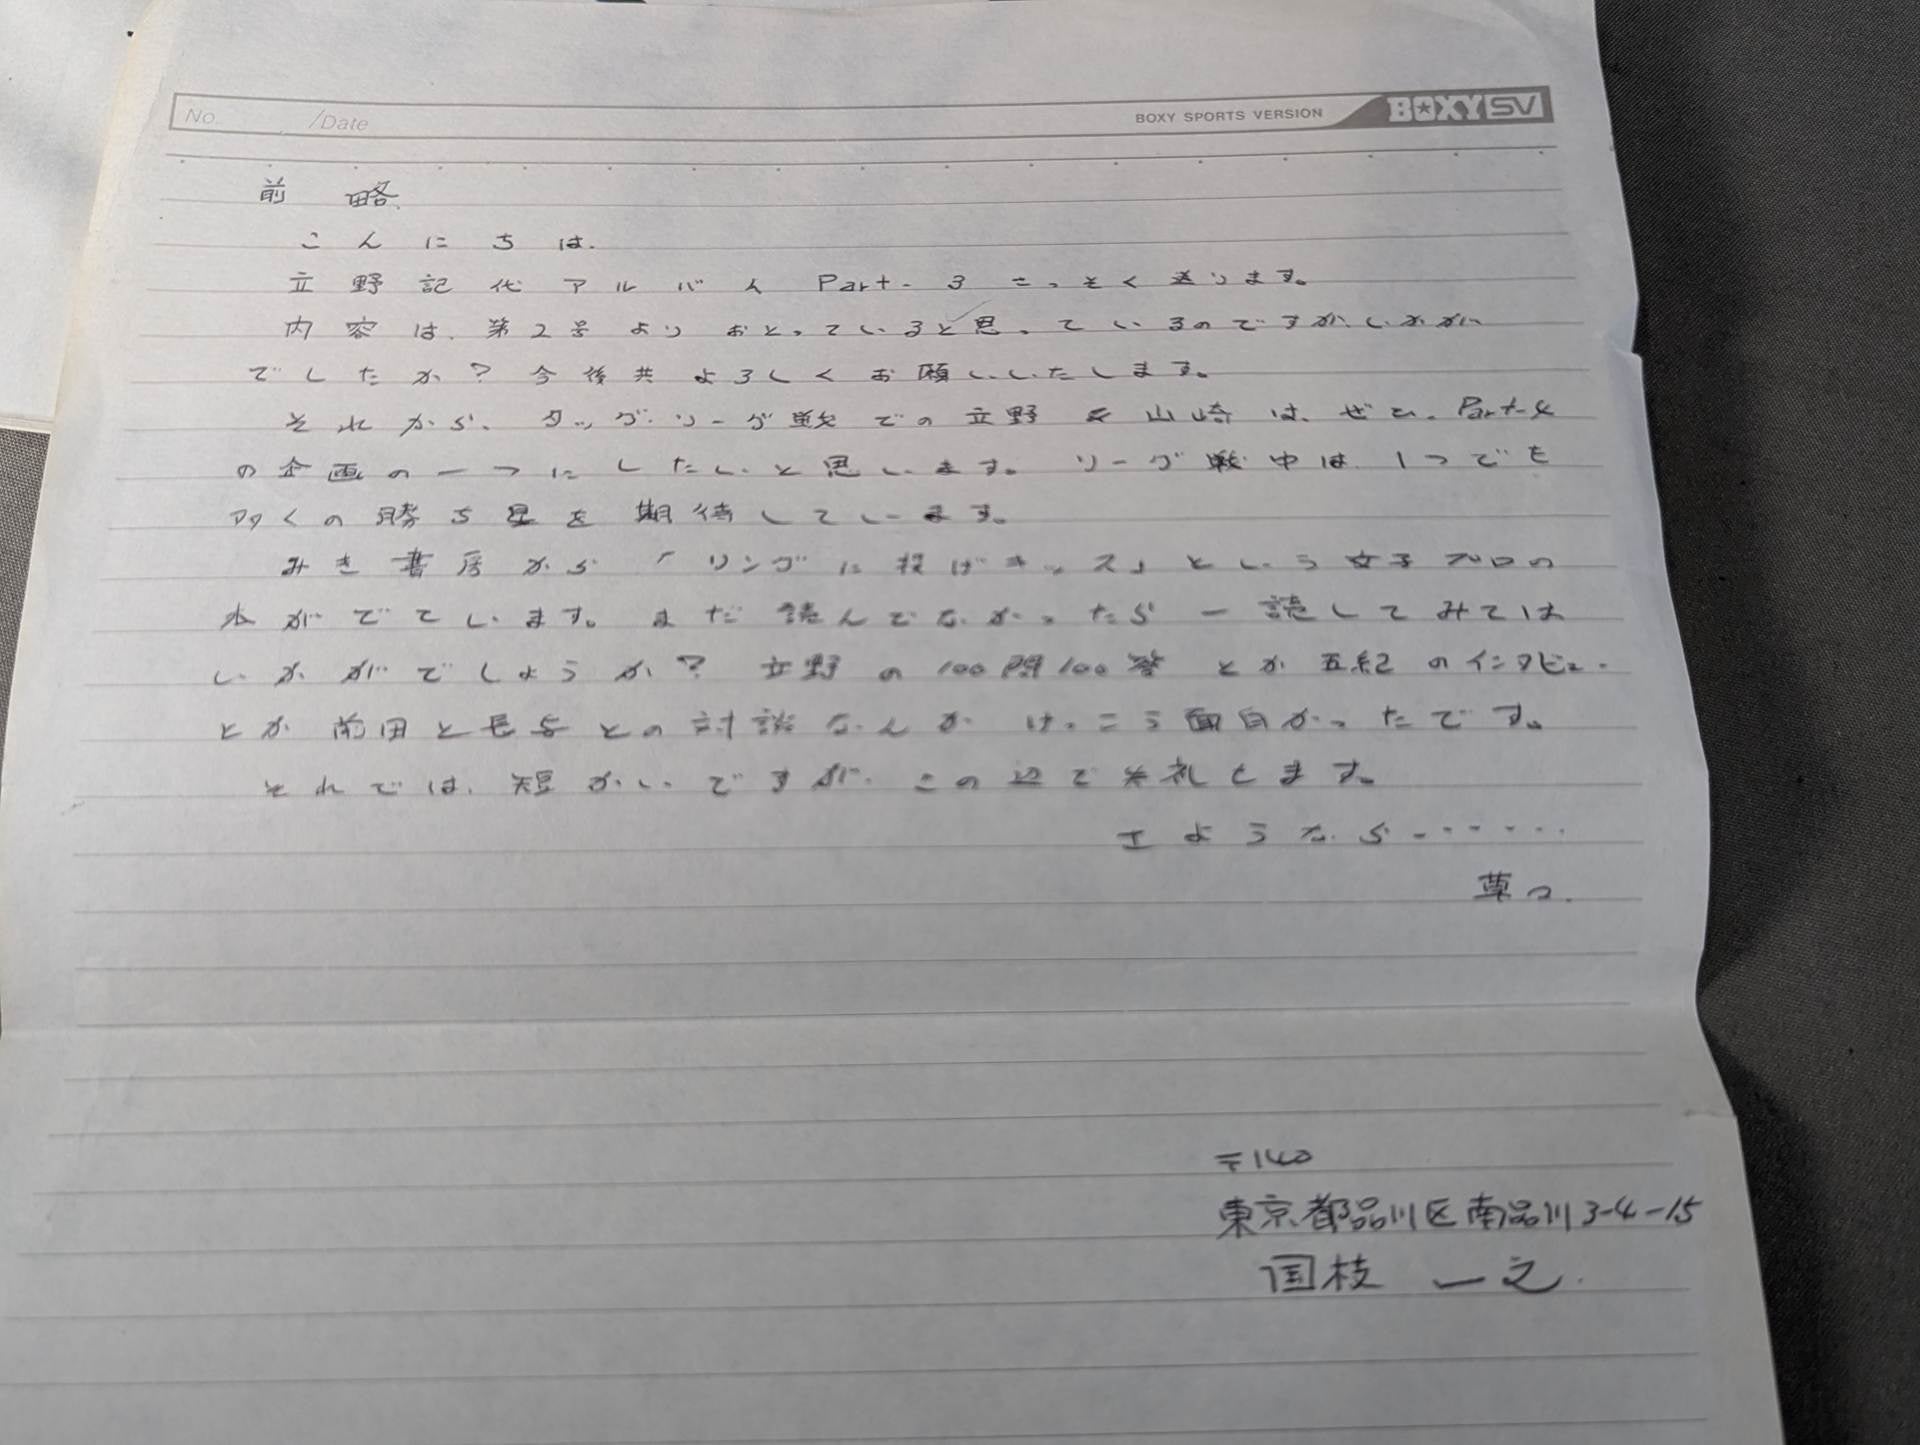 No. /Date BOXY SPORTS VERSION BOXY SV
前略
こんにちは.
立野記代アルバム Part-3 さっそく送ります。
内容は、第2号よりおとっていると思っているのですが、いかが
でしたか?今後共よろしくお願いいたします。
それから、タッグ・リーグ戦での立野&山崎は、ぜひ、Part-4
の企画の一つにしたいと思います。リーグ戦中は、1つでも
多くの勝ち星を期待しています。
みき書房から「リングに投げキッス」という女子プロの
本がでています。まだ読んでなかったら一読してみては
いかがでしょうか?立野の100問100答とか五紀のインタビュー
とか前田と長与との対談なんかけっこう面白かったです。
それでは、短かいですが、この辺で失礼します。
さようなら.......
草々.
〒140
東京都品川区南品川3-4-15
国枝 一之.